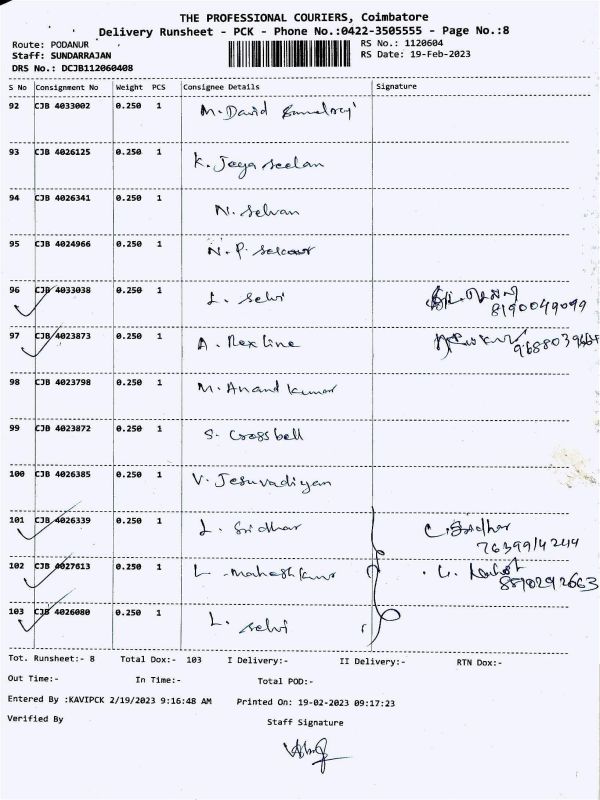 THE PROFESSIONAL COURIERS, Coimbatore
Delivery Runsheet - PCK - Phone No.:0422-3505555 - Page No.:8
Route: PODANUR RS No.: 1120604
Staff: SUNDARRAJAN RS Date: 19-Feb-2023
DRS No.: DCJB112060408
S No Consignment No Weight PCS Consignee Details Signature
92 CJB 4033002 0.250 1 M. David
93 CJB 4026125 0.250 1 K. Jeya seelan
94 CJB 4026341 0.250 1 N. Selvan
95 CJB 4024966 0.250 1 N. P.
96 CJB 4033038 0.250 1 L. Selvi
8190049099
97 CJB 4023873 0.250 1 A. Rexline
98 CJB 4023798 0.250 1 M. Anand kumar
99 CJB 4023872 0.250 1 S. Crossbell
100 CJB 4026385 0.250 1 V. Jesuvadiyan
101 CJB 4026339 0.250 1 L. Sridhar C. Sridhar
102 CJB 4027613 0.250 1 L. Maheshkumar
8890292663
103 CJB 4026080 0.250 1 L. Selvi
Tot. Runsheet:- 8 Total Dox:- 103 I Delivery:- II Delivery:- RTN Dox:-
Out Time:- In Time:- Total POD:-
Entered By :KAVIPCK 2/19/2023 9:16:48 AM Printed On: 19-02-2023 09:17:23
Verified By Staff Signature